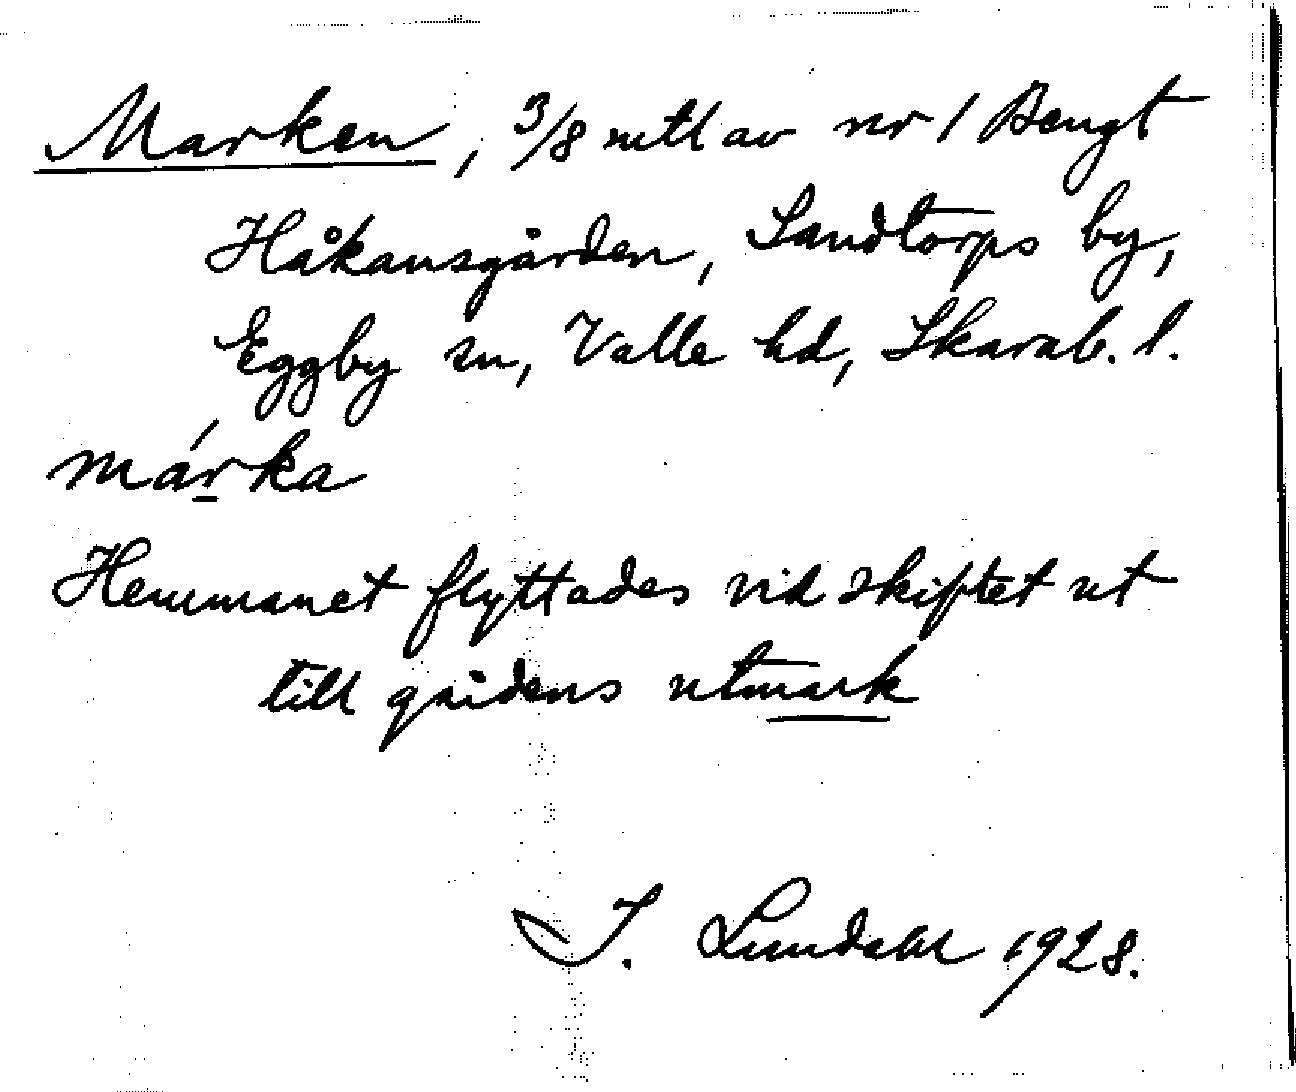 Marken, 3/8 mtl av nr 1 Bengt
Håkansgården, Sandtorps by,
Eggby sn, Valle hd, Skarab. l.
márka
Hemmanet flyttades vid skiftet ut
till gårdens utmark
I. Lundahl 1928.